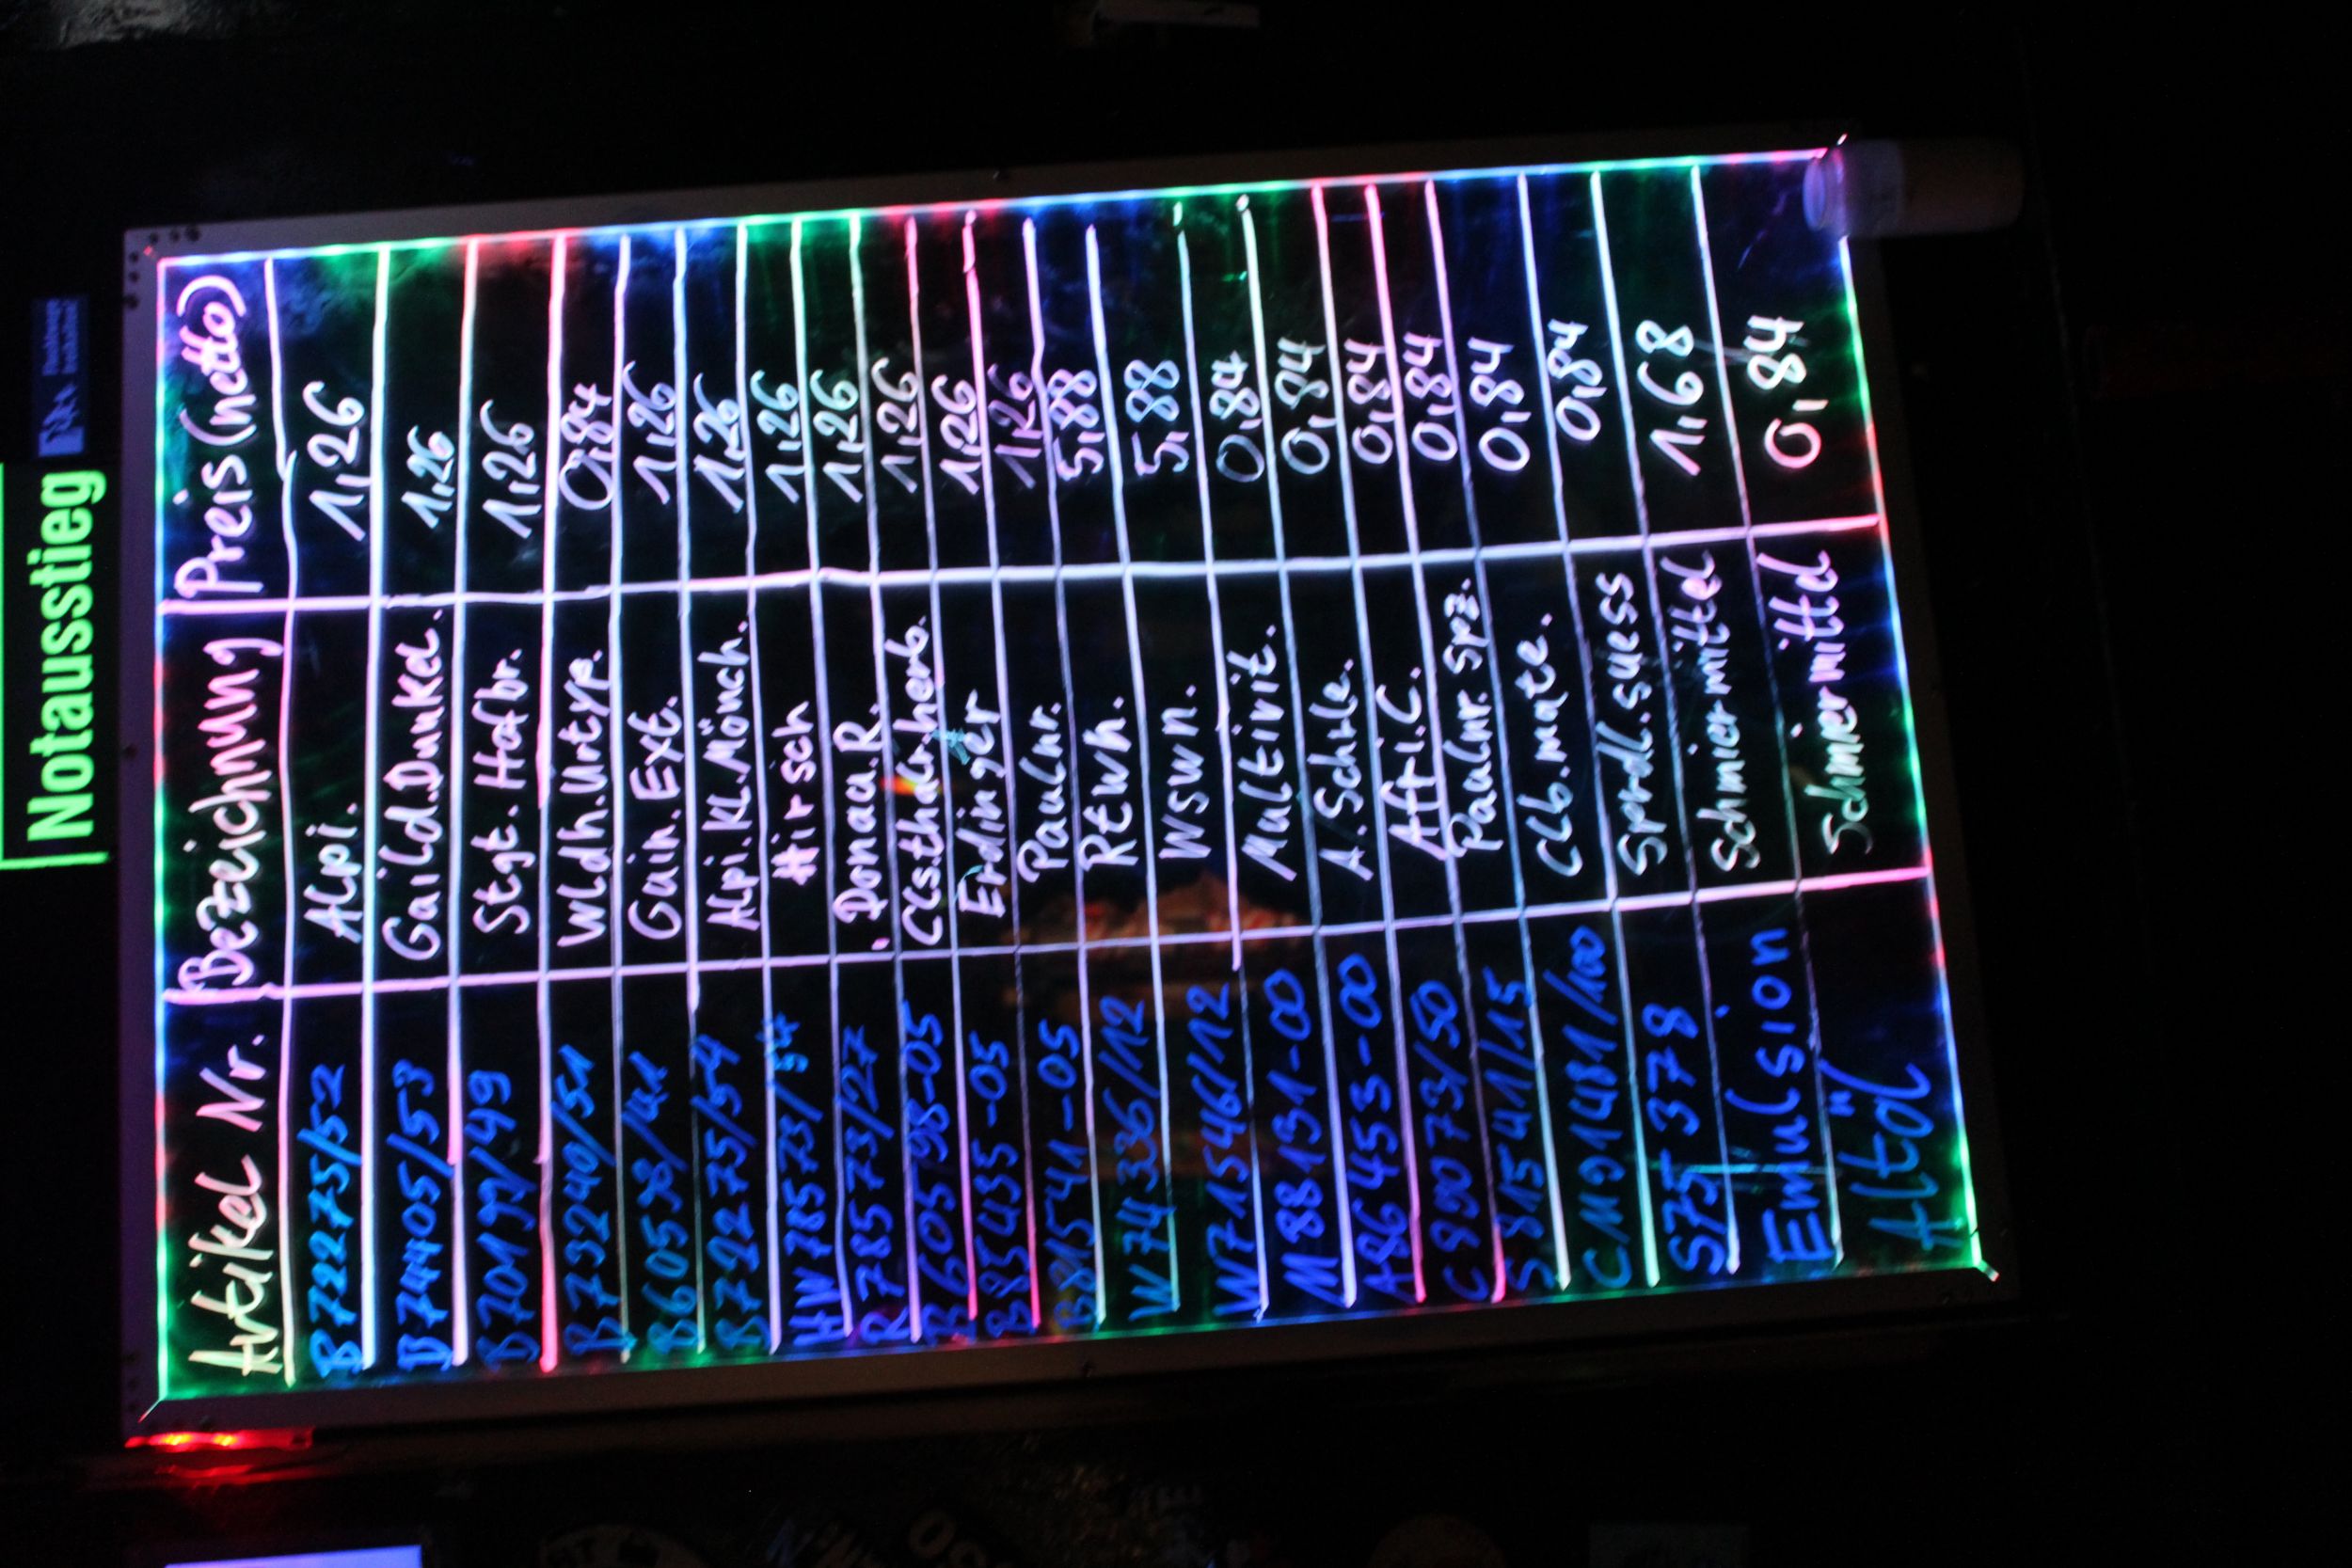 Notausstieg
Artikel Nr. Bezeichnung Preis (netto)
B72275/52 Alpi. 1,26
D74405/53 Gaild.Dunkel. 1,26
D70199/49 Stgt. Hofbr. 1,26
B73240/51 Wldh.Urtyp. 0,84
B60598/41 Gain.Ext. 1,26
B72275/54 Alpi.Kl.Mönch. 1,26
HW78573/54 Hirsch 1,26
R78573/27 Donau.R. 1,26
B60598-05 Cls.thalr.herb. 1,26
B85435-05 Erdinger 1,26
B81541-05 Paulnr. 1,26
W74336/12 Rtwh. 5,88
W71546/12 Wswn. 5,88
M88131-00 Multivit. 0,84
A86453-00 A.Schrle. 0,84
C89073/50 Afri.C. 0,84
S81541/15 Paulnr. Spz. 0,84
CM01481/100 Clb.mate. 0,84
S75378 Sprdl.suess 0,84
Emulsion Schmiermittel 1,68
Altöl Schmiermittel 0,84